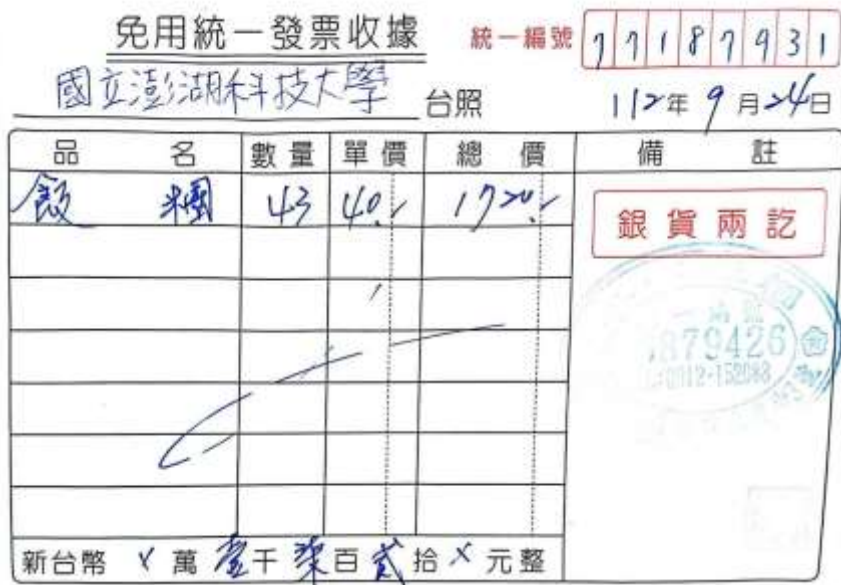 免用統一發票收據
統一編號 77187931
國立澎湖科技大學 台照
112年9月24日
品名 數量 單價 總價 備註
飯糰 43 40.- 1720.-
銀貨兩訖
879426
0912-152088
新台幣 X 萬 壹 千 柒 百 貳 拾 X 元整